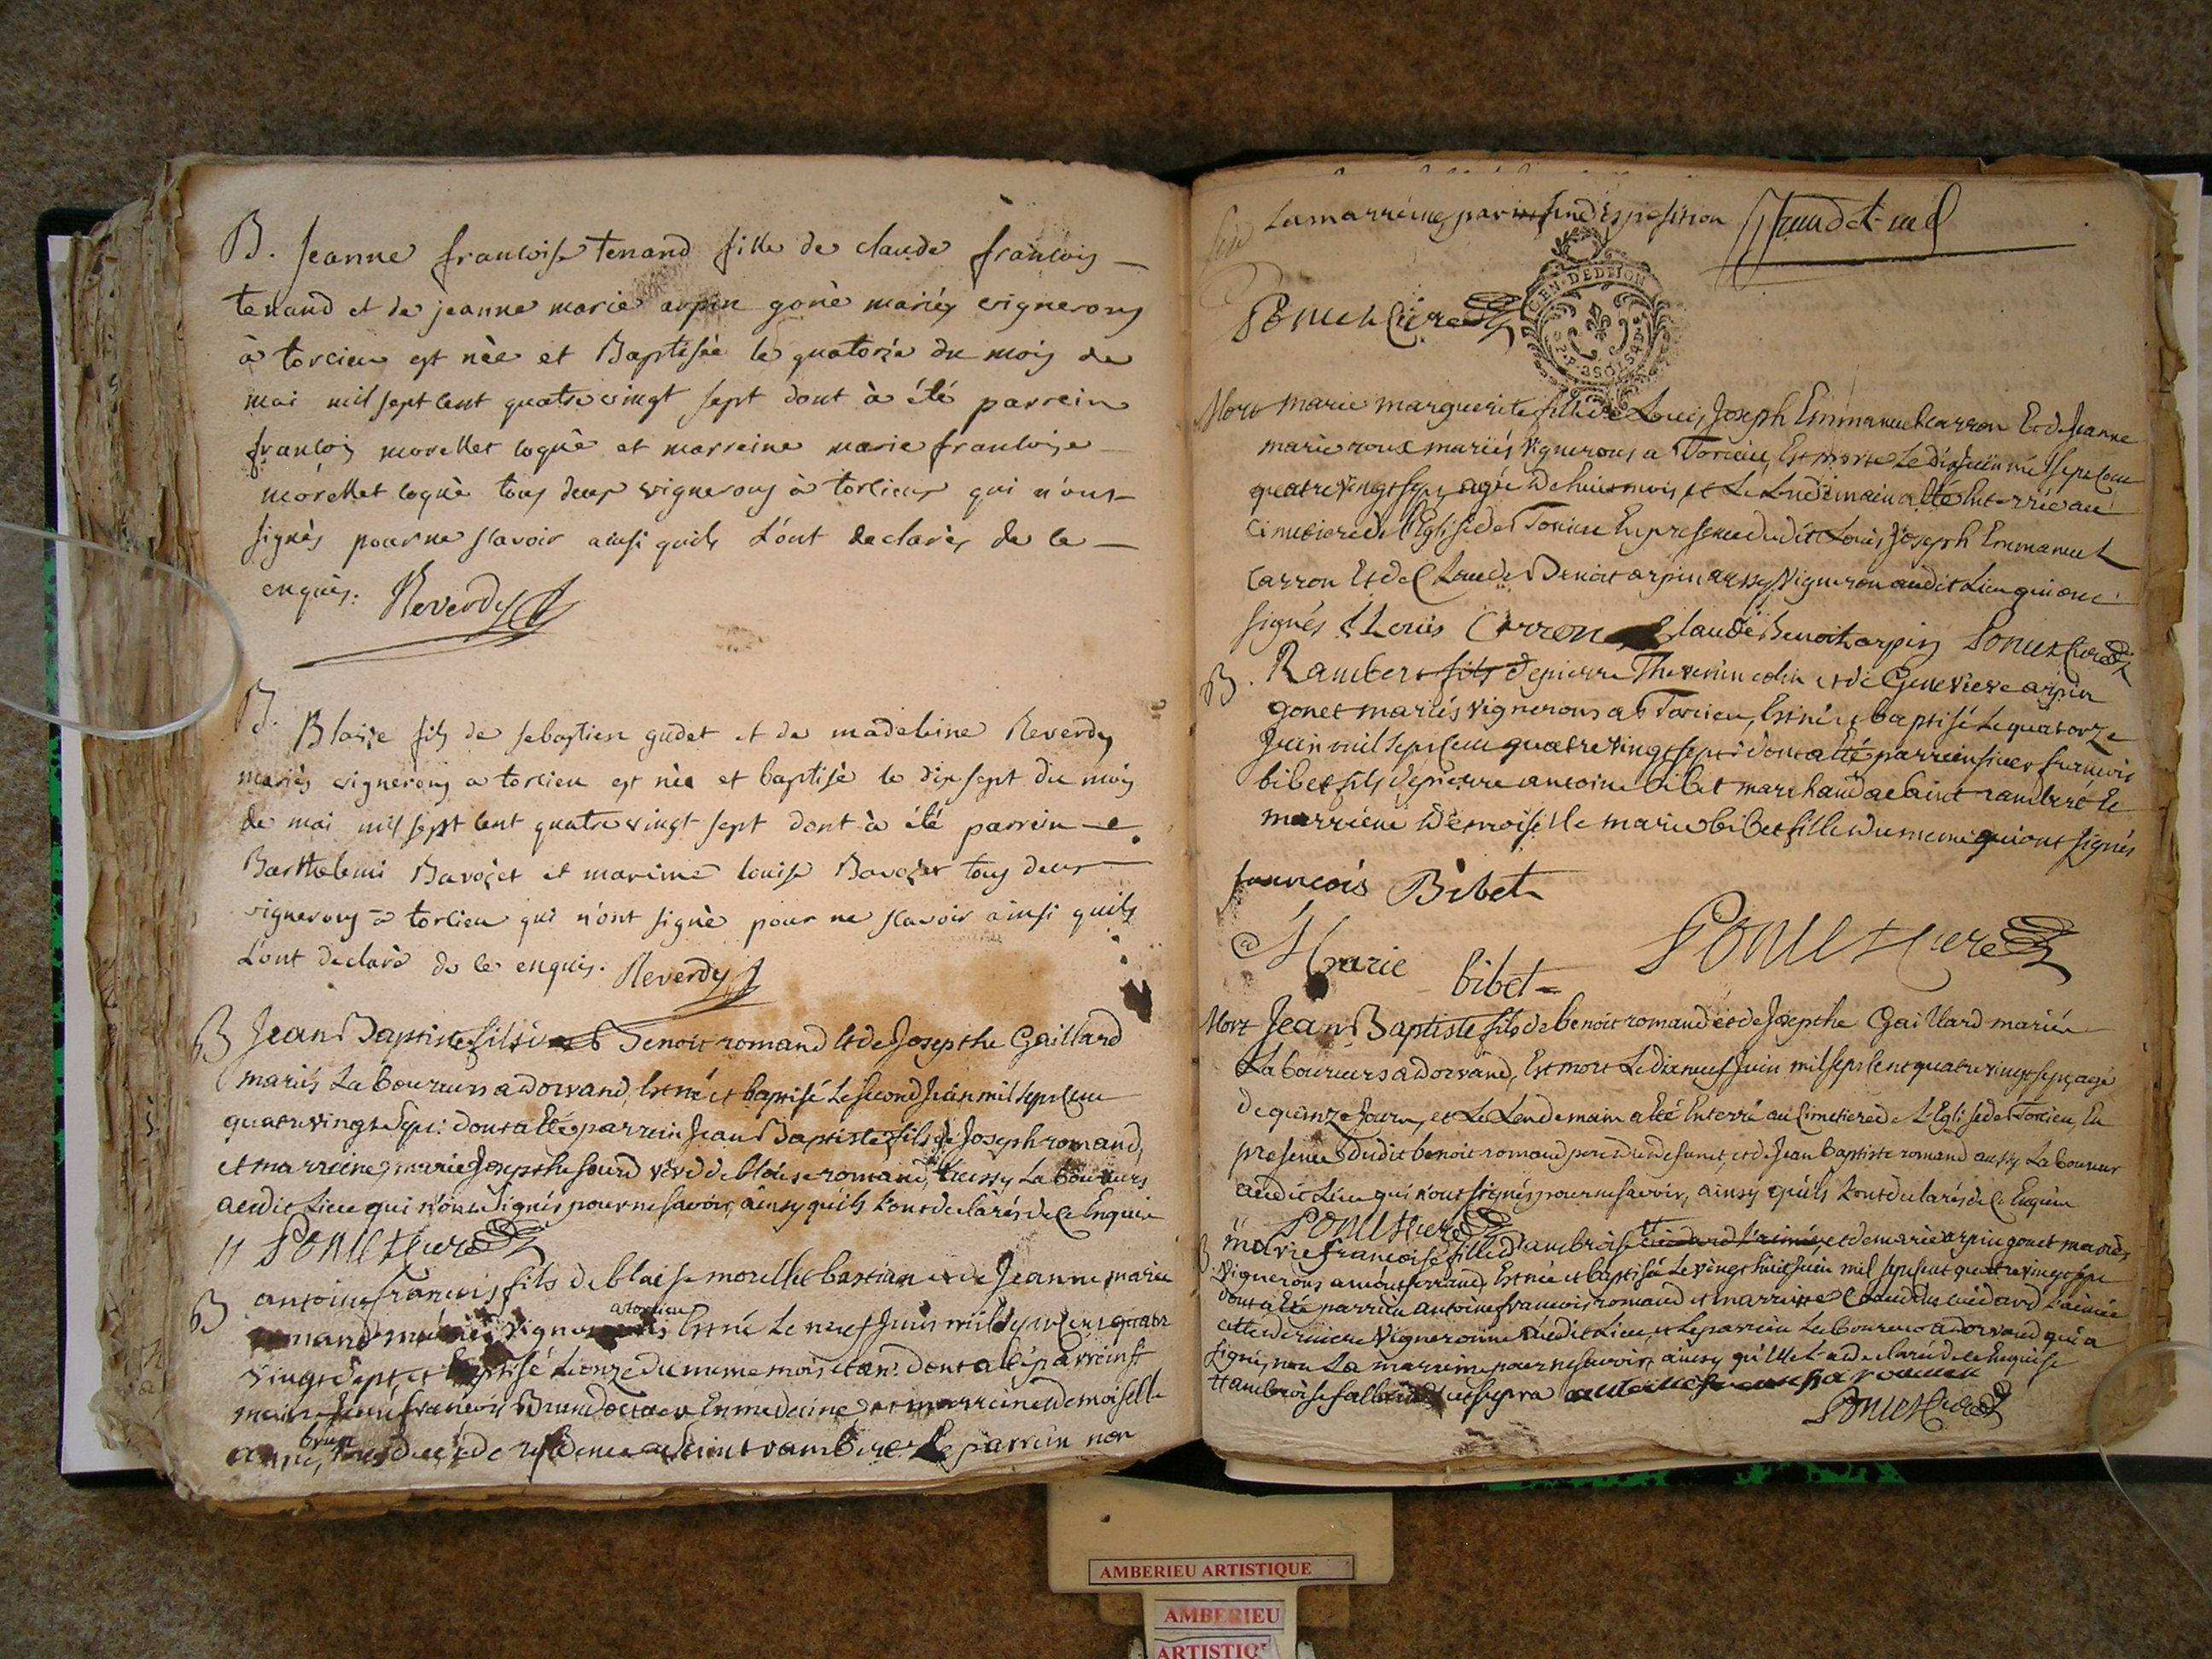 B. Jeanne francoise tenand fille de claude francois
tenand et de jeanne marie arpin gonè mariés vignerons
à torcieu est née et Baptisée le quatorze du mois de
mai mil sept cent quatre vingt sept dont à été parrein
francois morellet coguè et marreine marie francoise
morellet coguè tous deux vignerons à torcieux qui n'ont
signès pour ne scavoir ainsi quils l'ont declarès de ce
enquis. Reverdy
B. Blaise fils de sebastien gudet et de madeleine Reverdy
mariès vignerons a torcieu est nèe et baptisè le dix sept du mois
de mai mil sept cent quatre vingt sept dont à été parrein
Barthelemi Bavozet et mareine louise Bavozet tous deux
vignerons à torcieu qui n'ont signè pour ne scavoir ainsi quils
l'ont declarè de ce enquis. Reverdy
B Jean Baptiste fils de Benoit romand et de Josepthe Gaillard
mariés Laboureurs a dorvand, Est né et baptisé Le second Juin mil sept Cent
quatre vingt sept: dont a Eté parrein Jean Baptiste fils de Joseph romand,
et marreine, marie Josepthe sourd veve de blaise romand, aussy Laboureurs
audit Lieu qui n'ont Signés pour ne savoir, ainsy qu'ils L'ont declarés de Ce Enquis
Ponet Curé
B antoine francois fils de blaise morellet bastian et de Jeanne marie
romand mariés vignerons a torcieu Est né Le neuf Juin mil sept Cent quatre
vingt sept et baptisé Le onze du meme mois et an: dont a Eté parrein sr
francois Brun docteur En medecine, et marreine demoiselle
anne brun, de residence a saint rambert Le parrein non
La marreine, par indisposition Brun d. m.
Ponet Curé
GEN. DE DIJON
Mort marie marguerite fille de Louis Joseph Emmanuel Carron Et de Jeanne
marie roux mariés vignerons a Torcieu, Est morte Le dix Juin mil sept Cent
quatre vingt sept, agée de huit mois, et Le Lendemain a Eté Enterrée au
Cimetiere de L'Eglise de Torcieu En presence dudit Louis Joseph Emmanuel
Carron Et de Claude Benoit arpin aussy Vigneron audit Lieu qui ont
signés Louis Carron Claude Benoit arpin Ponet Curé
B. Rambert fils de pierre Thevenin colin et de Genevieve arpin
gonet mariés vignerons a Torcieu, Est né et baptisé Le quatorze
Juin mil sept Cent quatre vingt sept: dont a Eté parrein sieur francois
bibet fils de pierre antoine bibet marchand a saint rambert Et
marreine demoiselle marie bibet fille du meme qui ont signés
francois Bibet
Marie bibet
Ponet Curé
Mort Jean Baptiste fils de benoit romand et de Josepthe Gaillard mariés
Laboureurs a dorvand, Est mort Le dix neuf Juin mil sept Cent quatre vingt sept, agé
de quinze Jours, et Le Lendemain a Eté Enterré au Cimetiere de L'Eglise de Torcieu, En
presence dudit benoit romand pere du defunt, et de Jean baptiste romand aussy Laboureur
audit Lieu qui n'ont signés pour ne savoir, ainsy qu'ils L'ont declarés de Ce Enquis
Ponet Curé
B. marie francoise fille d'ambroise et de marie arpin gonet mariés
Vignerons a montferrand Est née et baptisée Le vingt huit Juin mil sept Cent quatre vingt sept
dont a Eté parrein antoine francois romand et marreine Claudine L'ainée
cette derniere Vigneronne audit Lieu, et Le parrein Laboureur a dorvand qui a
signé, non La marreine pour ne savoir, ainsy qu'elle L'a declaré de Ce Enquise
Ponet Curé
AMBERIEU ARTISTIQUE
AMBERIEU
ARTISTIQ